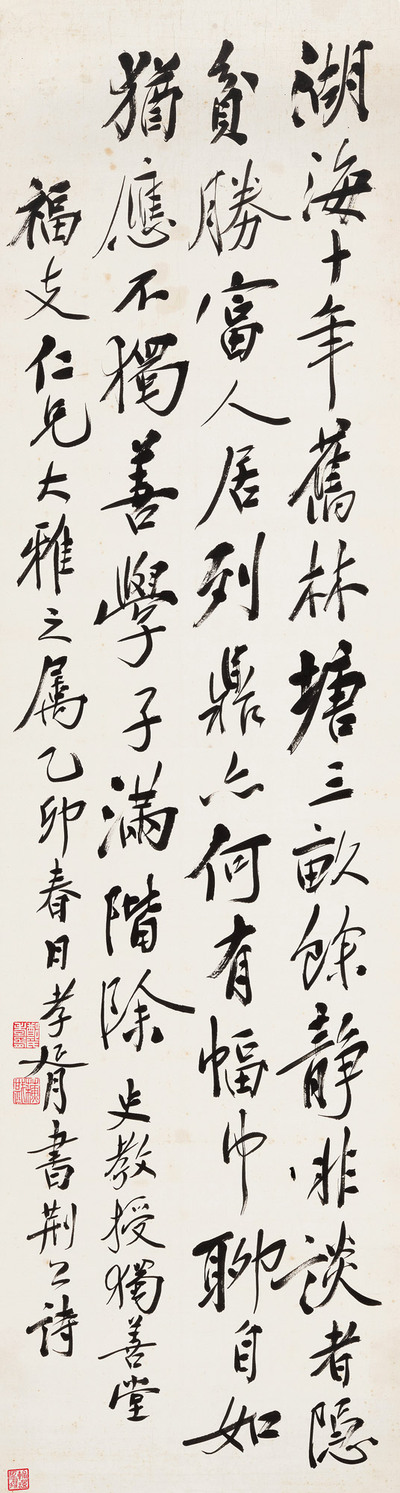 湖海十年舊林塘三畝餘靜非談者隱
貧勝富人居列鼎亦何有幅巾聊自如
猶應不獨善學子滿階除 史教授獨善堂
福支仁兄大雅之屬乙卯春日孝胥書荊公詩